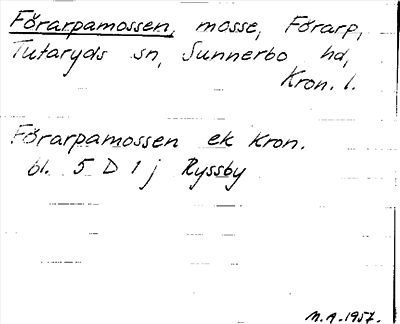 Förarpamossen, mosse, Förarp,
Tutaryds sn, Sunnerbo hd,
Kron. l.
Förarpamossen ek Kron.
bl. 5 D 1 j Ryssby
M.A. 1957.